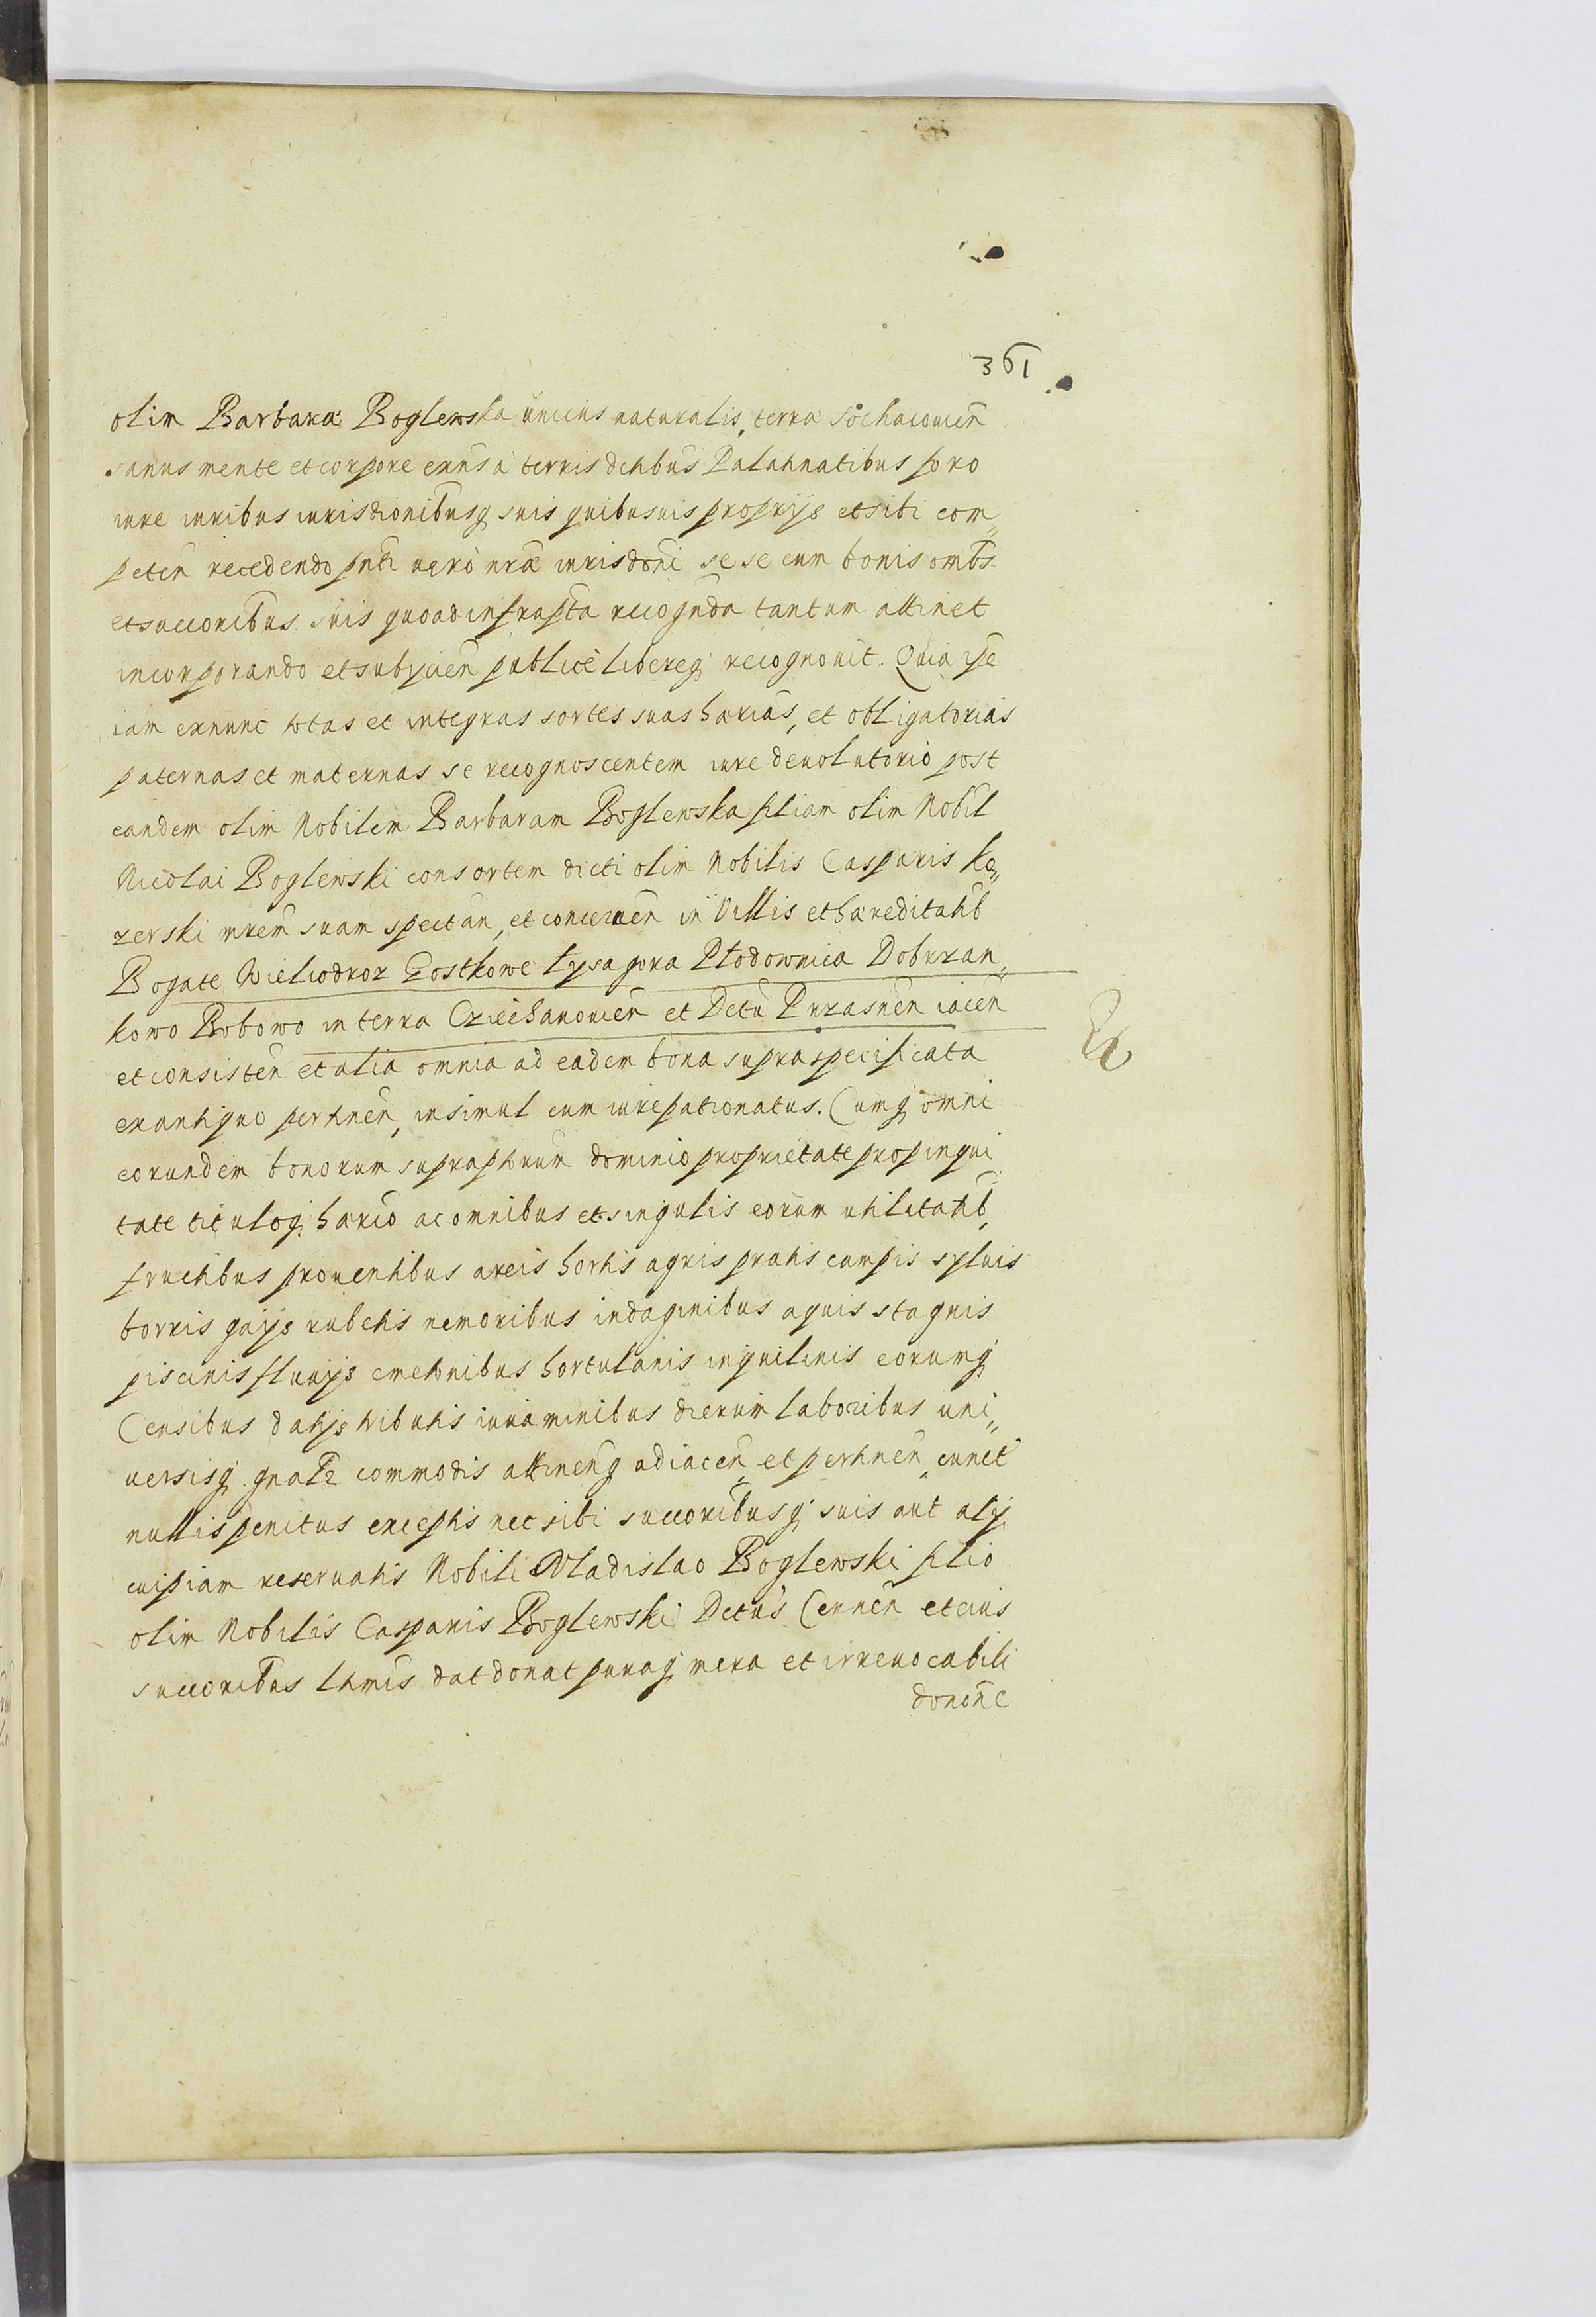 361
olim Barbaræ Boglewska unicus naturalis, terræ Sochacouien̄
sanus mente et corpore exn̄s à terris dctibus Palatinatibus foro
iure iuribus iurisdionibusq suis quibusuis proprijs et sibi com„
peten̄ recedendo pn̄ti uerò nræ iurisdoni se se cum bonis omb̄s
et succoribus suis quoad infrapta recognda tantum attinet
incorporando et subÿcien̄ publicè libereq recognouit. Quia ipe
iam exnunc totas et integras sortes suas hærias, et obligatorias
paternas et maternas se recognoscentem iure deuolutorio post
eandem olim Nobilem Barbaram Boglewska filiam olim Nobil
Nicolai Boglewski consortem dicti olim Nobilis Casparis Ko„
zerski mrem suam spectan̄, et concernen̄ in Villis et hæreditatib
Bogate Wielodroz Gostkowe Łysa gora Płodownica Dobrzan„
kowo Bobowo in terra Cziechanouien̄ et Dctū Przasnen̄ iacen̄
et consisten̄ et alia omnia ad eadem bona supraspecificata
exantiquo pertinen̄, insimul cum iurepatronatus. Cumq omni
eorundem bonorum supraptorum dominio proprietate propinqui
tate tituloq hærio ac omnibus et singulis eorum utilitatib,
fructibus prouentibus areis hortis agris pratis campis syluis
borris gaijs rubetis nemoribus indaginibus aquis stagnis
piscinis fluuijs cmetonibus hortulanis inquilinis eorumq
Censibus datijs tributis iuuaminibus dierum laboribus uni„
uersisq gnalr commodis attinen̄q adiacen̄ et pertinen̄, cunct
nullis penitus exceptis nec sibi succoribusq suis aut alÿ
cuipiam reseruatis Nobili Vladislao Boglewski filio
olim Nobilis Casparis Boglewski Dctus Cernen̄ et eius
succoribus ltmis dat donat puraq mera et irreuocabili
donone